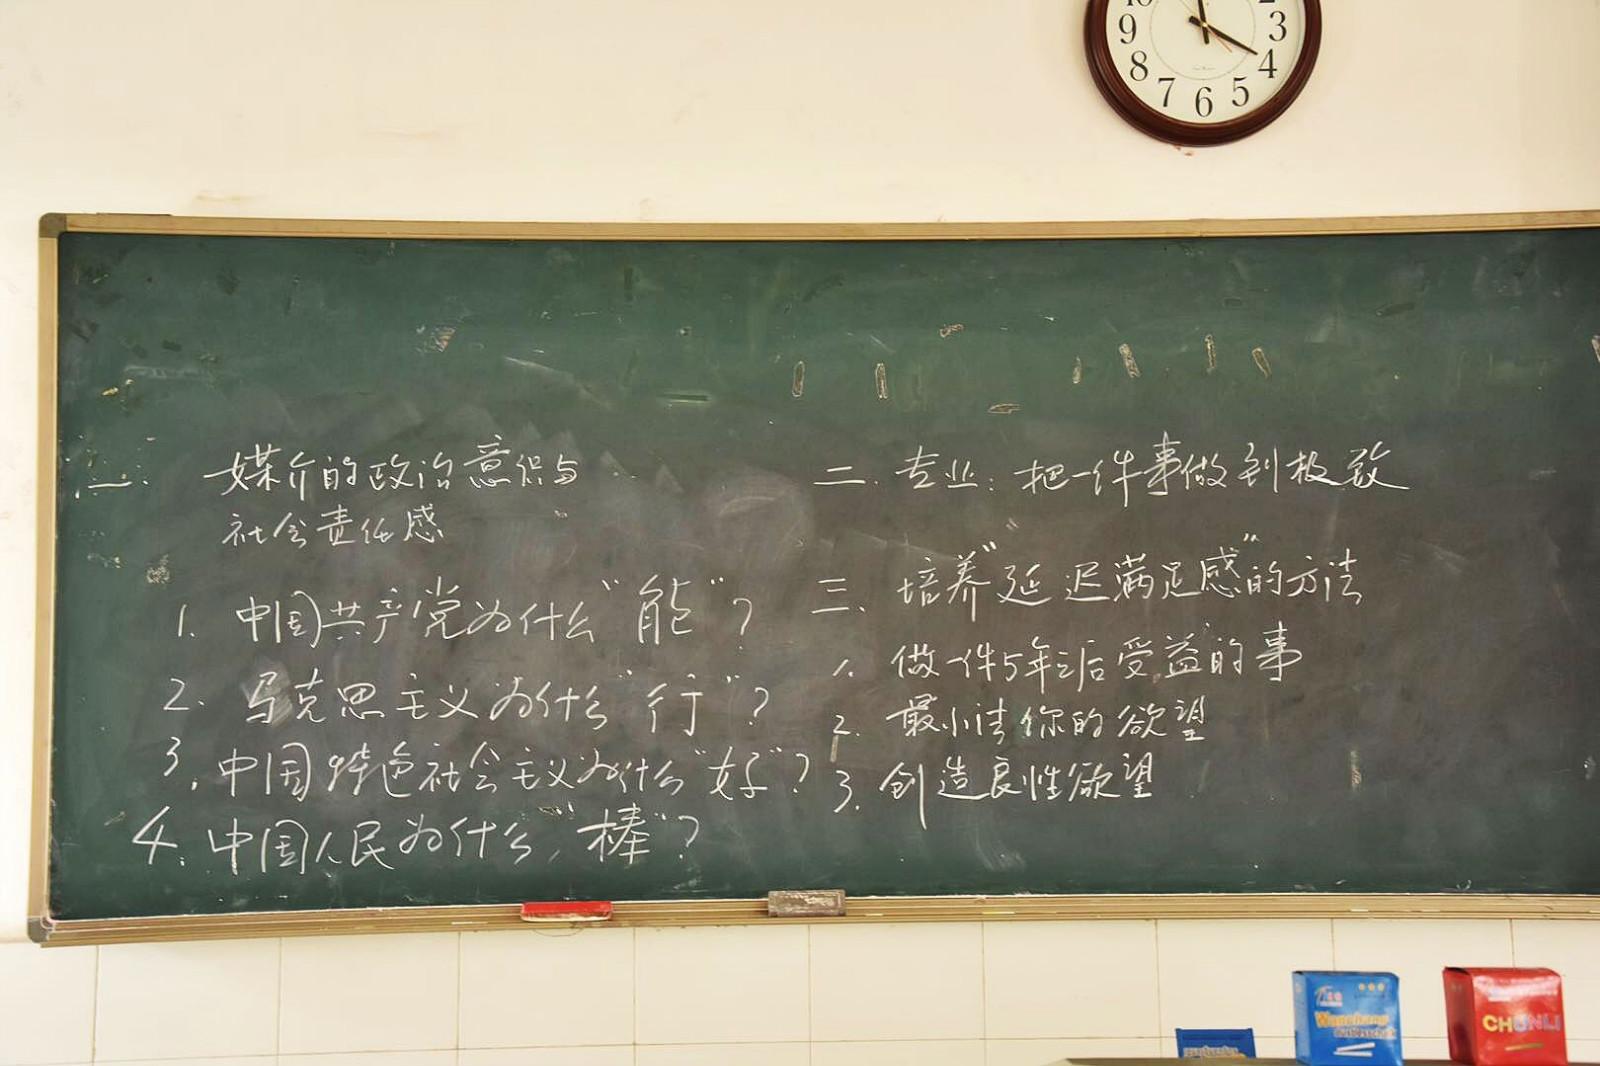 一. 媒介的政治意识与
社会责任感
1. 中国共产党为什么“能”？
2. 马克思主义为什么“行”？
3. 中国特色社会主义为什么“好”？
4. 中国人民为什么“棒”？
二. 专业：把一件事做到极致
三. 培养“延迟满足感”的方法
1. 做一件5年之后受益的事
2. 最小法你的欲望
3. 创造良性欲望
10 2
9 3
8 4
7 6 5
Wanchang
dustless chalk
CHUNLI